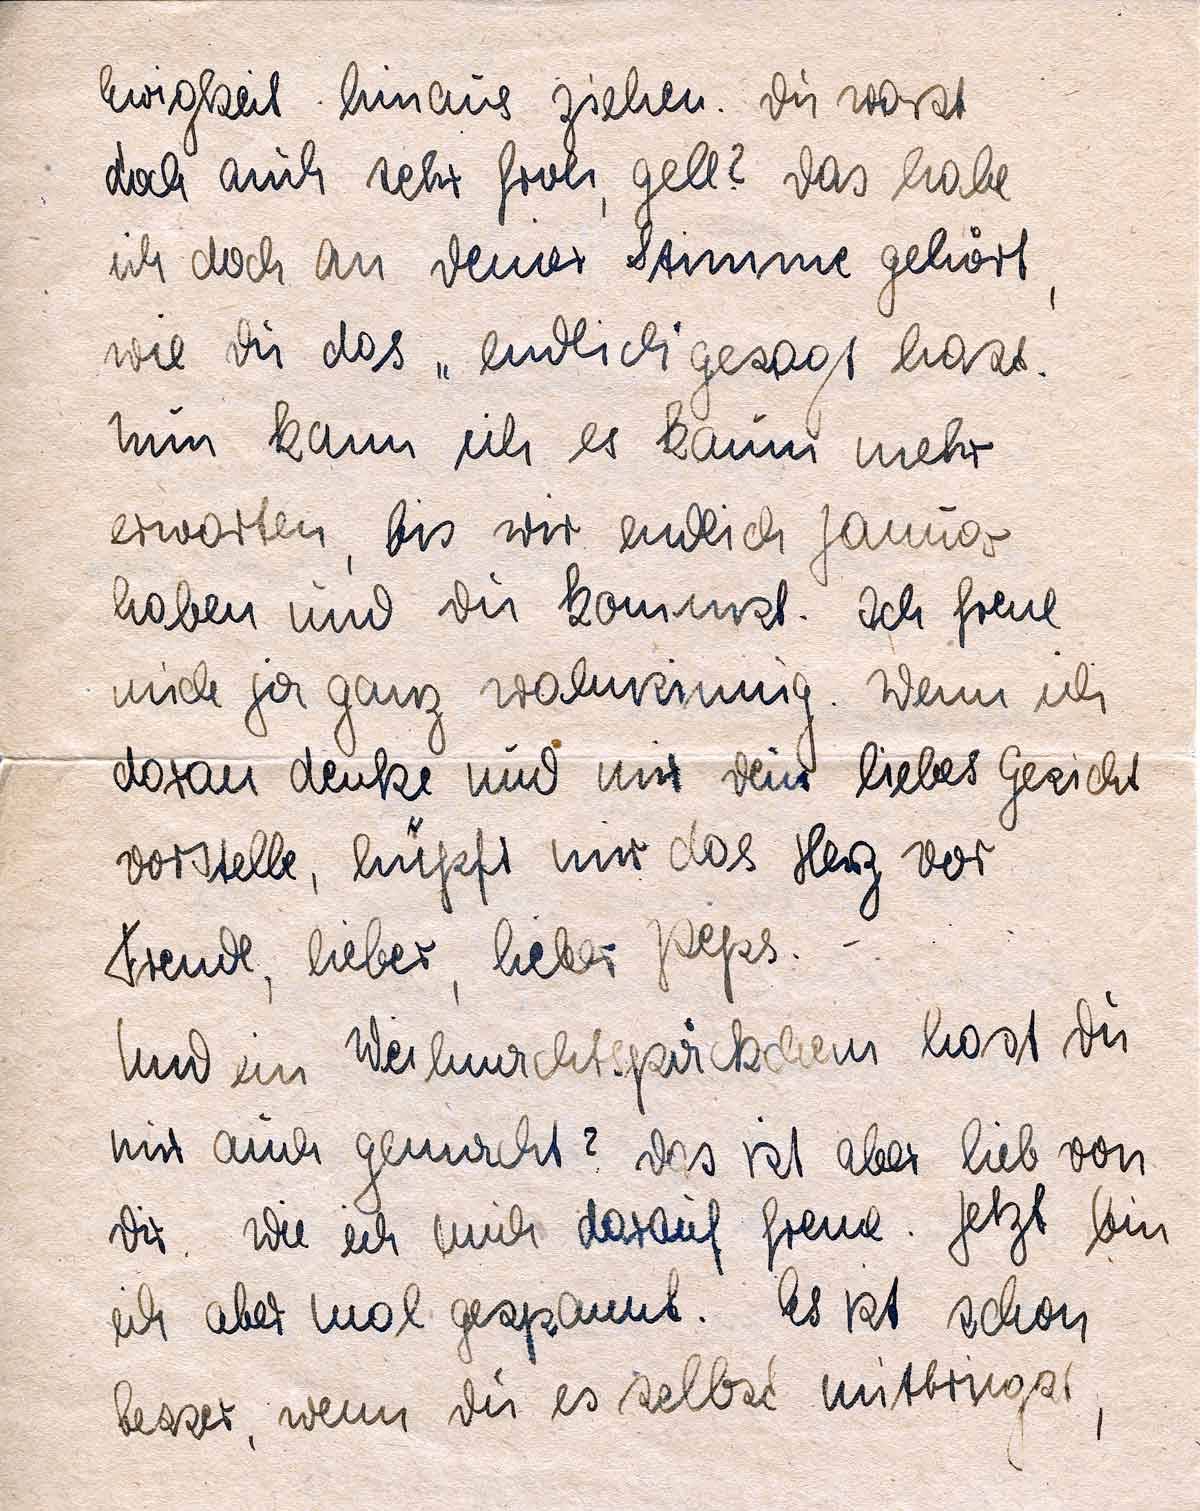 Ewigkeit hinaus ziehen. Du warst
doch auch sehr froh, gell? Das habe
ich doch an deiner Stimme gehört,
wie du das „endlich" gesagt hast.
Nun kann ich es kaum mehr
erwarten, bis wir endlich Januar
haben und du kommst. Ich freue
mich ja ganz wahnsinnig. Wenn ich
daran denke und mir dein liebes Gesicht
vorstelle, hüpft mir das Herz vor
Freude, lieber, lieber Peps. -
Und ein Weihnachtspäckchen hast Du
mir auch gemacht? Das ist aber lieb von
Dir. Wie ich mich darauf freue. Jetzt bin
ich aber mal gespannt. Es ist schon
besser, wenn du es selbst mitbringst,